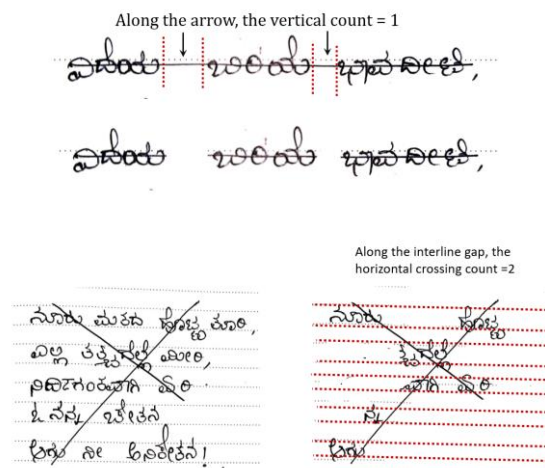 Along the arrow, the vertical count = 1
ಎದೆಯ ಬಿರಿಯೆ ಭಾವದೀಟಿ,
ಎದೆಯ ಬಿರಿಯೆ ಭಾವದೀಟಿ,
ನೂರು ಮತದ ಹೊಟ್ಟ ತೂರಿ,
ಎಲ್ಲ ತತ್ತ್ವದೆಲ್ಲೆ ಮೀರಿ,
ನಿರ್ದಿಗಂತವಾಗಿ ಏರಿ
ಓ ನನ್ನ ಚೇತನ
ಆಗು ನೀ ಅನಿಕೇತನ!
Along the interline gap, the
horizontal crossing count =2
ನೂರು ಹೊಟ್ಟ
ತ್ವದೆಲ್ಲೆ
ವಾಗಿ ಏರಿ
ನ್ನ
ಆಗು